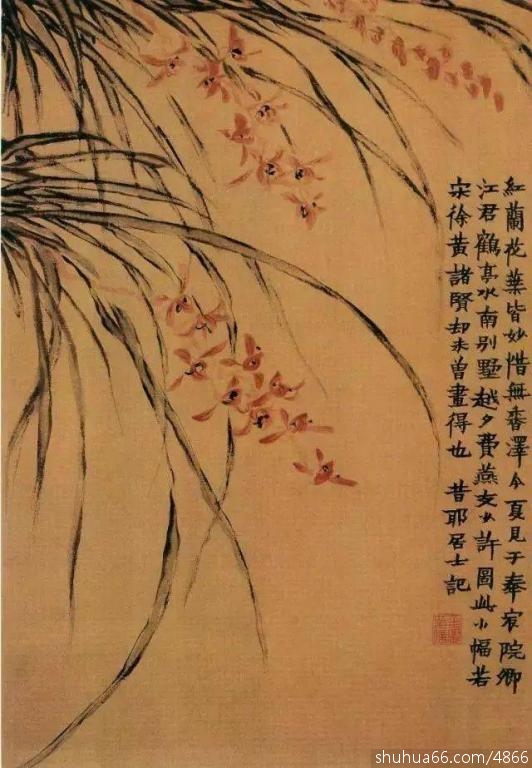 紅蘭花葉皆妙惜無香澤今夏見于奉宸院卿
江君鶴亭水南別墅越夕費燕支少許圖此小幅若
宋徐黃諸賢却未曾畫得也 昔耶居士記
shuhua66.com/4866